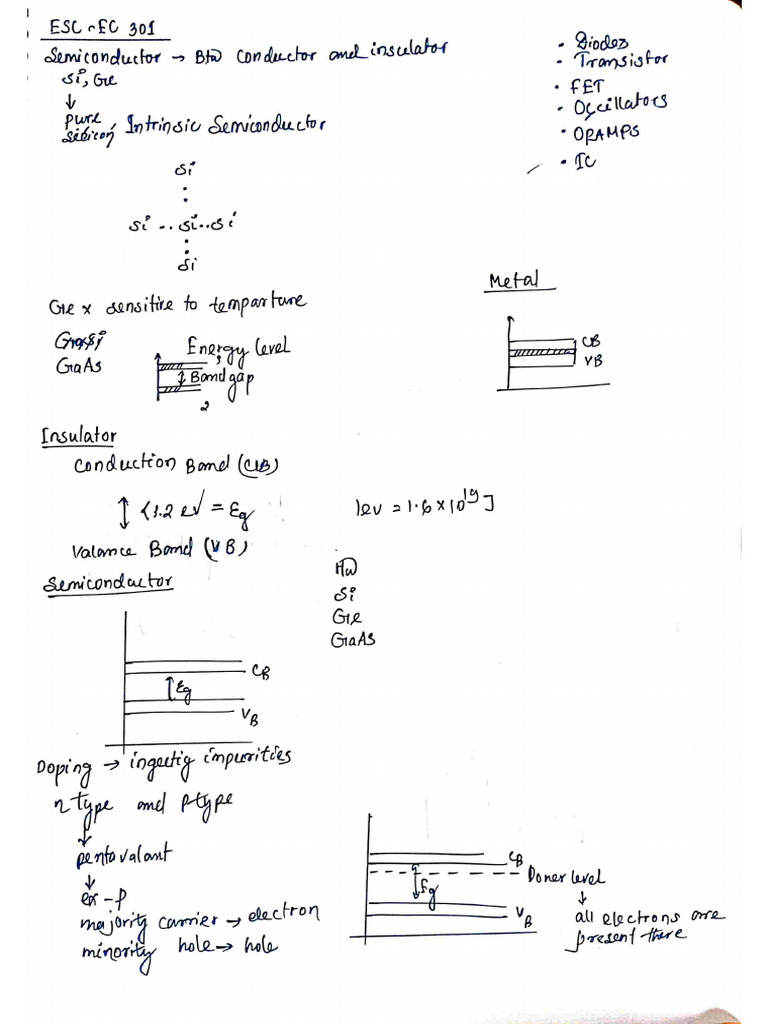 ESC-EC 301
Semiconductor → Btw conductor and insulator
Si, Ge
↓
pure silicon, Intrinsic Semiconductor
• Diodes
• Transistor
• FET
• Oscillators
• OPAMPS
• IC
Si
Si .. Si .. Si
Si
Ge x sensitire to temparture
GaAs
Energy level
Band gap
2
Metal
CB
VB
Insulator
Conduction Band (CB)
↕ <3.2 ev = Eg
Valance Band (VB)
1ev = 1.6 x 10^19 J
Semiconductor
CB
Eg
VB
HW
Si
Ge
GaAs
Doping → ingectig impurities
n type and P-type
↓
pentavalant
↓
ex - P
majority carrier → electron
minority hole → hole
CB
Doner level
Eg
VB
↓
all electrons are
present there